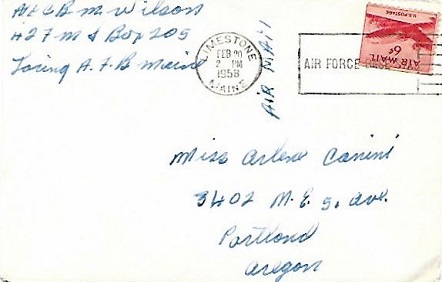 A/2C B M Wilson
427 M S Box 205
Loring A.F.B Maine
AIR MAIL
LIMESTONE
FEB 20
2 PM
1958
MAINE
AIR FORCE
U.S. POSTAGE
6¢
AIR MAIL
Miss Arlene Canini
3402 N.E. 9. Ave.
Portland
Oregon